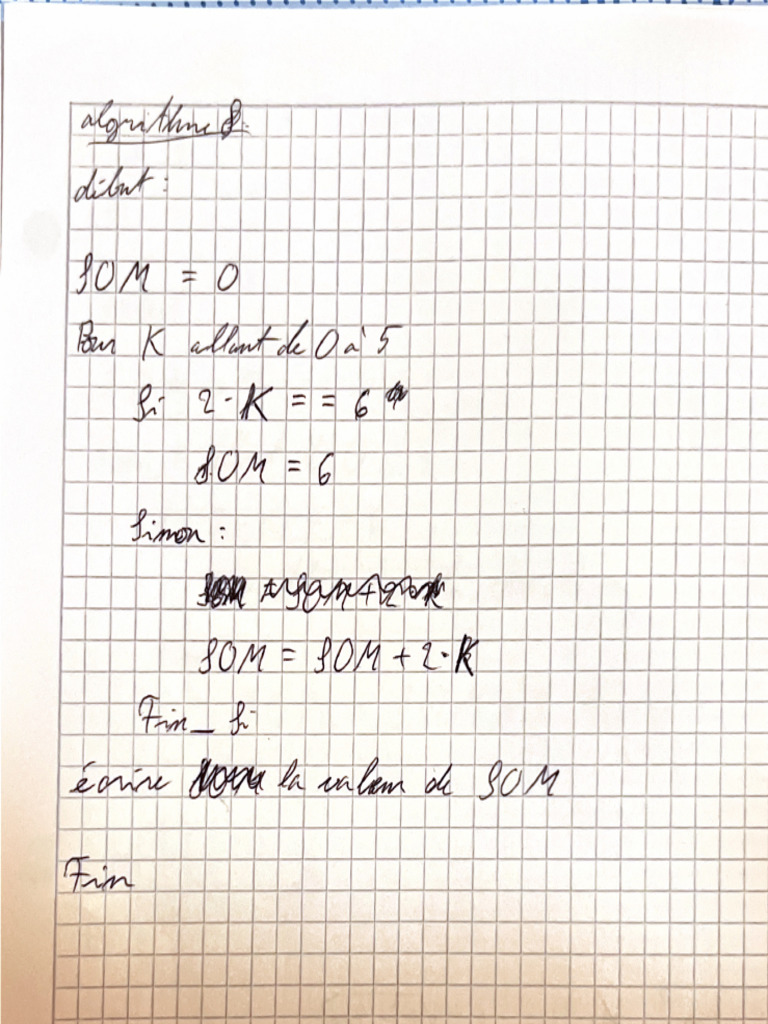 algorithme 8:
début :
SOM = 0
Pour K allant de 0 à 5
Si 2·K == 6
SOM = 6
Sinon :
SOM = SOM + 2·K
Fin_Si
écrire la valeur de SOM
Fin